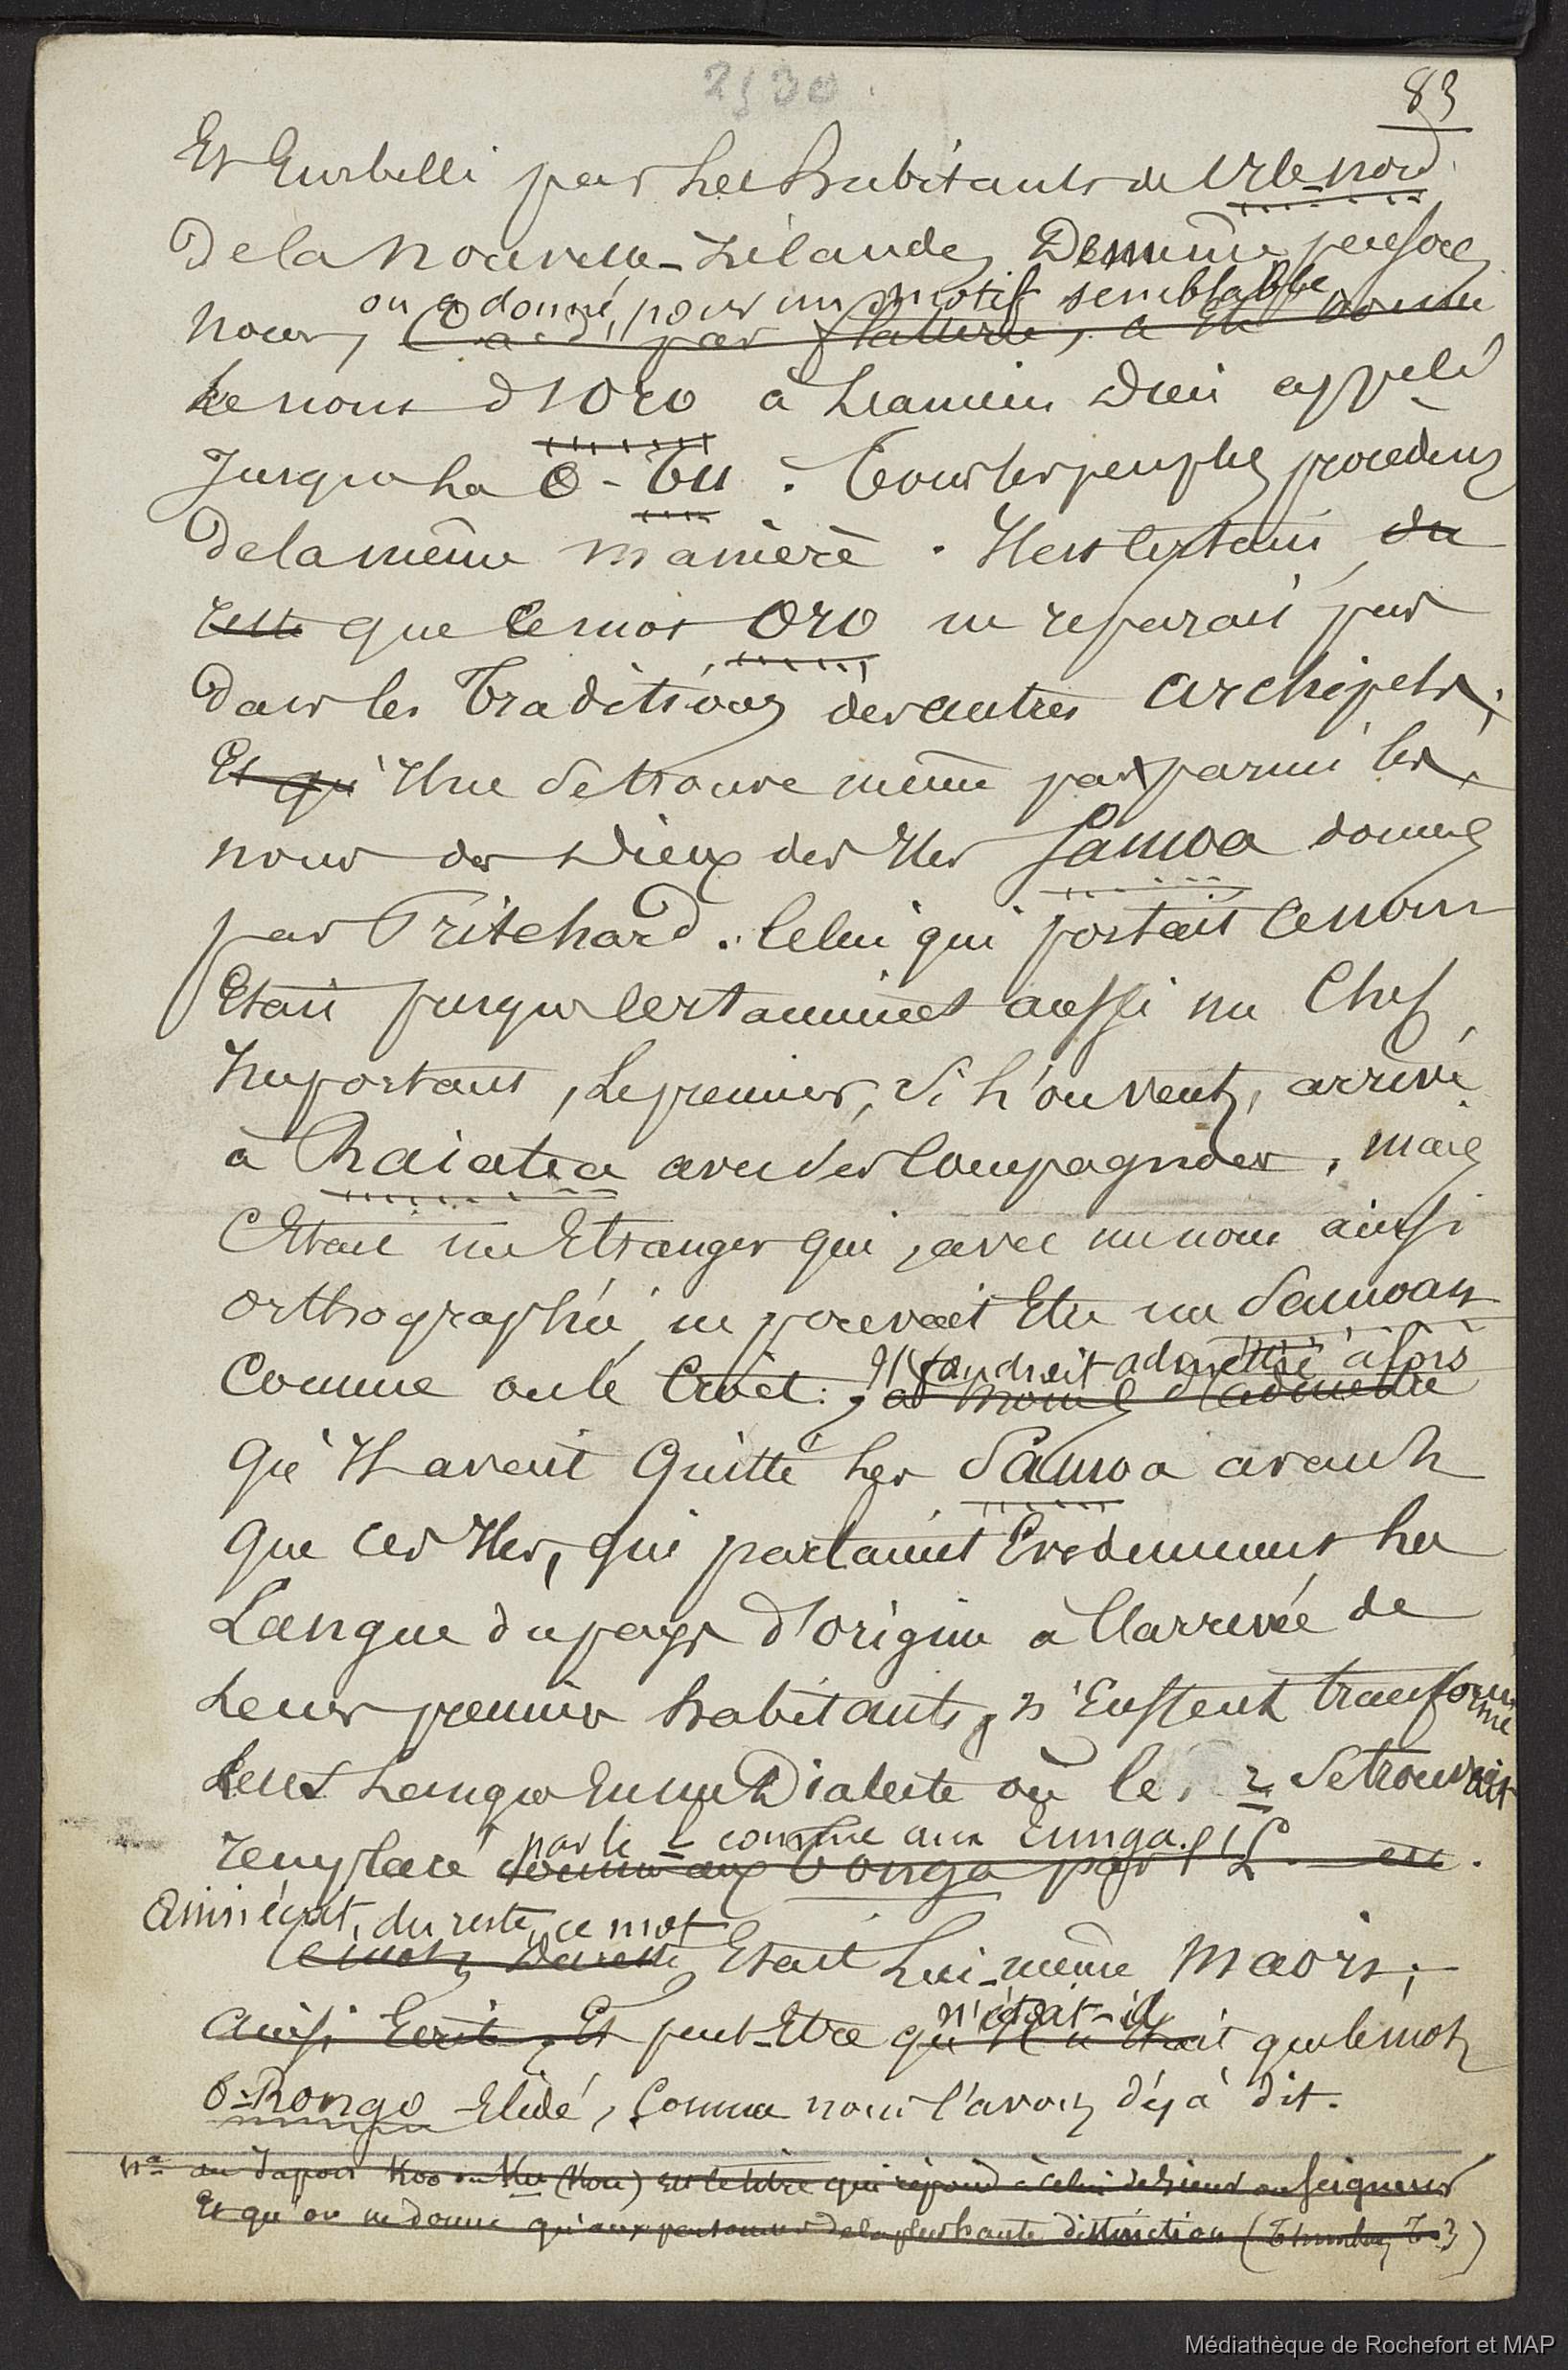 2530.
83
Et Embelli par les habitants de l'Ile-nord
De la Nouvelle-Zélande, De même pensons
nous, on a donné, pour un motif semblable
C'a d, par flatterie, a été donné
Le nom d'Oro à l'ancien Dieu appelé
Jusque là O-Tu. Tous les peuples procèdent
De la même manière. Il est certain du
reste que le mot Oro ne reparait pas
Dans les Traditions des autres archipels;
Et qu'Il ne se trouve même pas parmi les
noms des Dieux des Iles Samoa donnés
par Pritchard. Celui qui portait ce nom
Etait presque certainement aussi un Chef
Important, Le premier, si l'on veut, arrivé
à Raiatea avec ses Compagnons, mais
C'Etait un Etranger qui, avec un nom ainsi
orthographié, ne pouvait Etre un Samoan
Comme on le Croit: Il faudrait admettre alors
, a moins d'admettre
Qu'Il avait Quitté les Samoa avant
Que ces Iles, qui parlaient Evidemment la
Langue du pays d'origine a l'arrivée de
Leurs premiers habitants, n'Eussent transformé
Leur Langue En un Dialecte où le r se trouvait
remplacé par le l comme aux Tunga.
comme aux Tonga par l'L
Ainsi écrit, du reste, ce mot
Ce mot, Du reste, Etait Lui-même Maori;
ainsi Ecrit, Et peut-Etre n'était-il
qu'Il n'Etait que le mot
O-Rongo Elidé, Comme nous l'avons déjà dit.
Nª au Japon Koo ou Ku (Kou) est le titre qui répond à celui de Sieur ou Seigneur
Et qu'on ne donne qu'aux personnes de la plus haute distinction (Thunberg T. 3)
Médiathèque de Rochefort et MAP